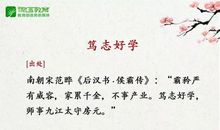 笃志好学
[出处]
南朝宋范晔《后汉书·侯霸传》：“霸矜严
有威容，家累千金，不事产业。笃志好学，
师事九江太守房元。”